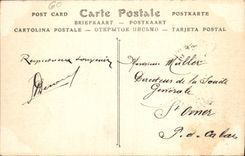 60
POST CARD Carte Postale POSTKARTE
BRIEFKAART ОТКРЫТОЕ ПИСЬМО BREVKORT
CARTOLINA POSTALE TARJETA POSTAL
Monsieur Müller
Directeur de la Société
Générale
St Omer
P. d. Calais